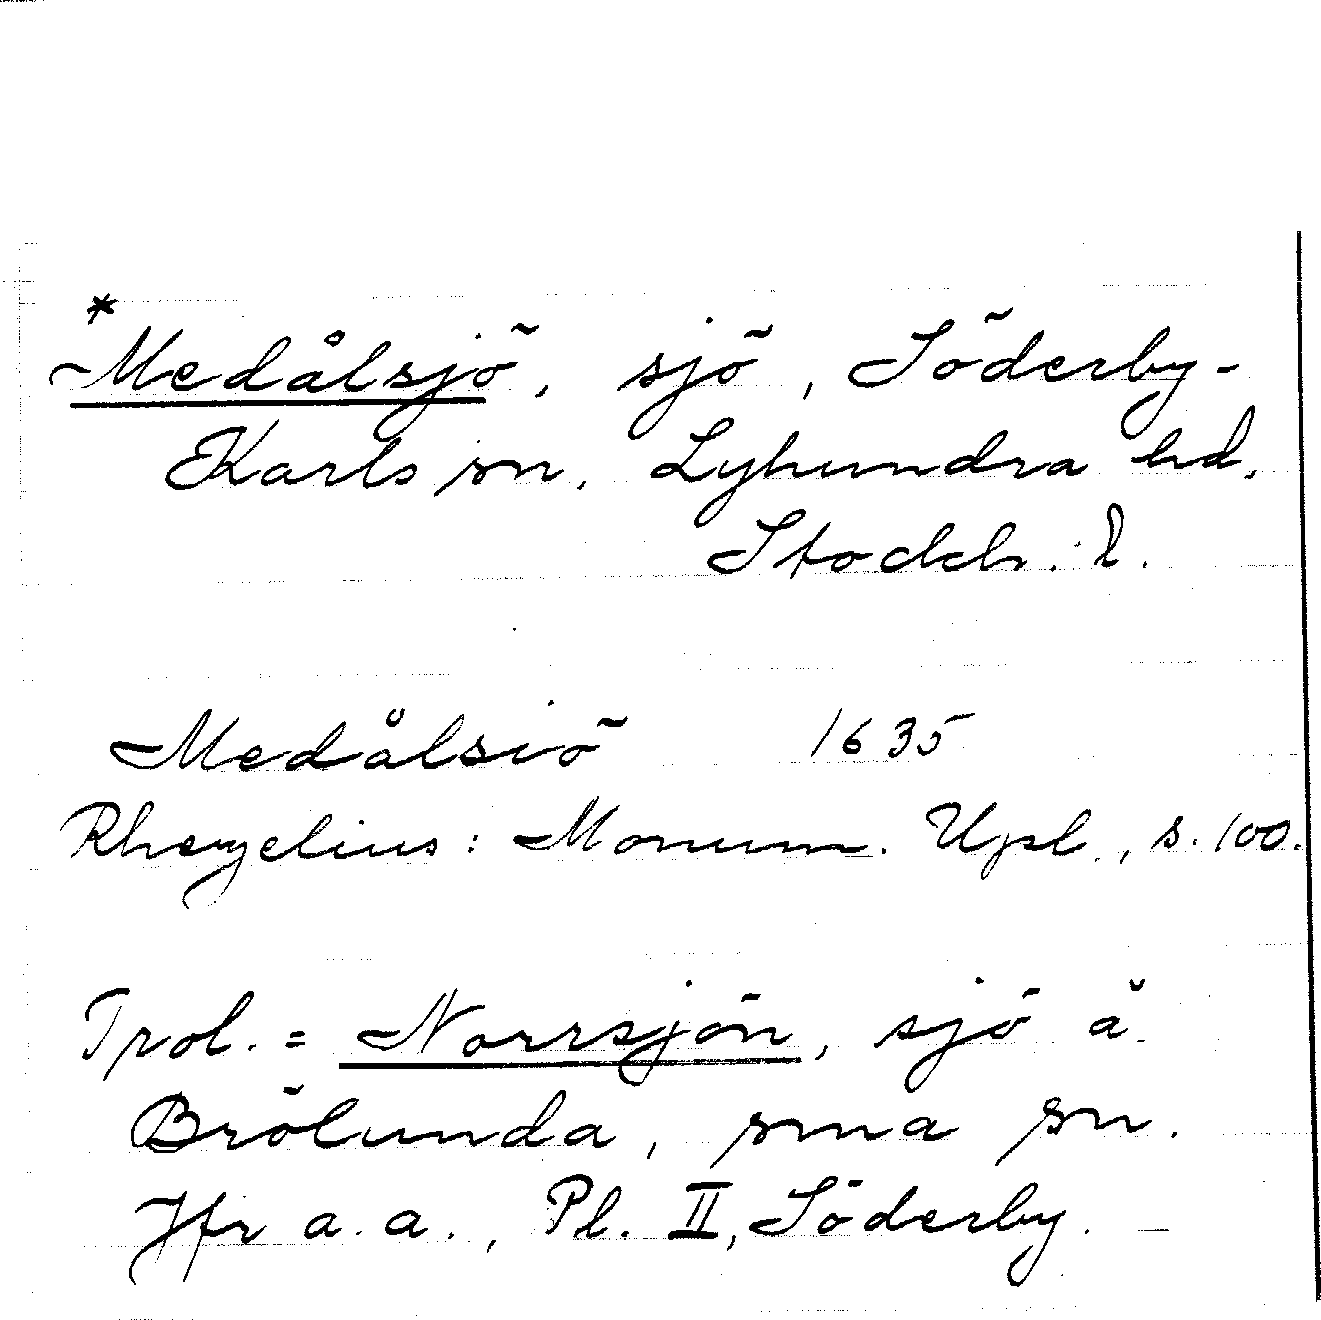 *Medålsjö, sjö, Söderby-
Karls sn, Lyhundra hd.
Stockh. l.
Medålsiö 1635
Rhezelius: Monum. Upl., s. 100.
Trol. = Norrsjön, sjö å
Brölunda, sma sn.
Jfr a.a., Pl. II, Söderby. —